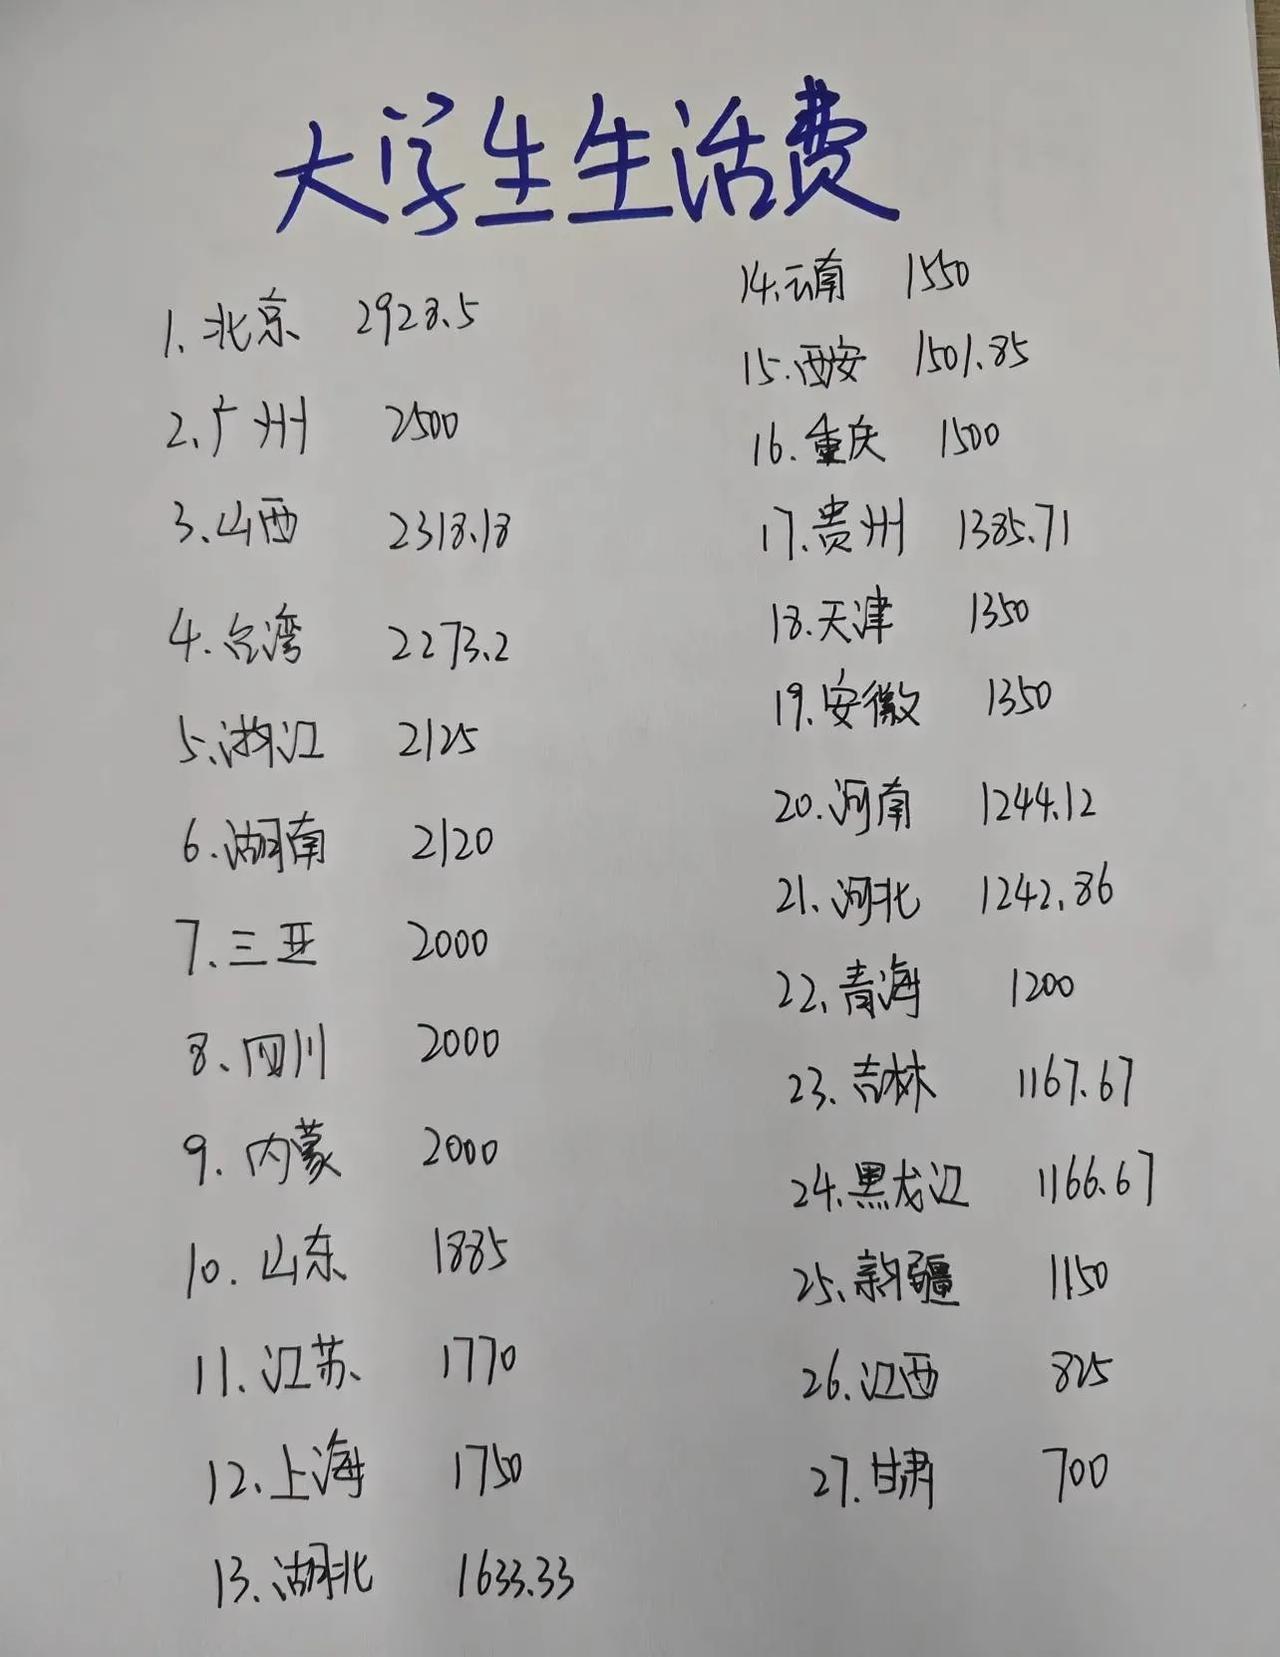 大学生生活费
1. 北京 2928.5
2. 广州 2500
3. 山西 2318.18
4. 台湾 2273.2
5. 浙江 2125
6. 湖南 2120
7. 三亚 2000
8. 四川 2000
9. 内蒙 2000
10. 山东 1885
11. 江苏 1770
12. 上海 1750
13. 湖北 1633.33
14. 云南 1550
15. 西安 1501.85
16. 重庆 1500
17. 贵州 1385.71
18. 天津 1350
19. 安徽 1350
20. 河南 1244.12
21. 河北 1242.86
22. 青海 1200
23. 吉林 1167.67
24. 黑龙江 1166.67
25. 新疆 1150
26. 江西 825
27. 甘肃 700